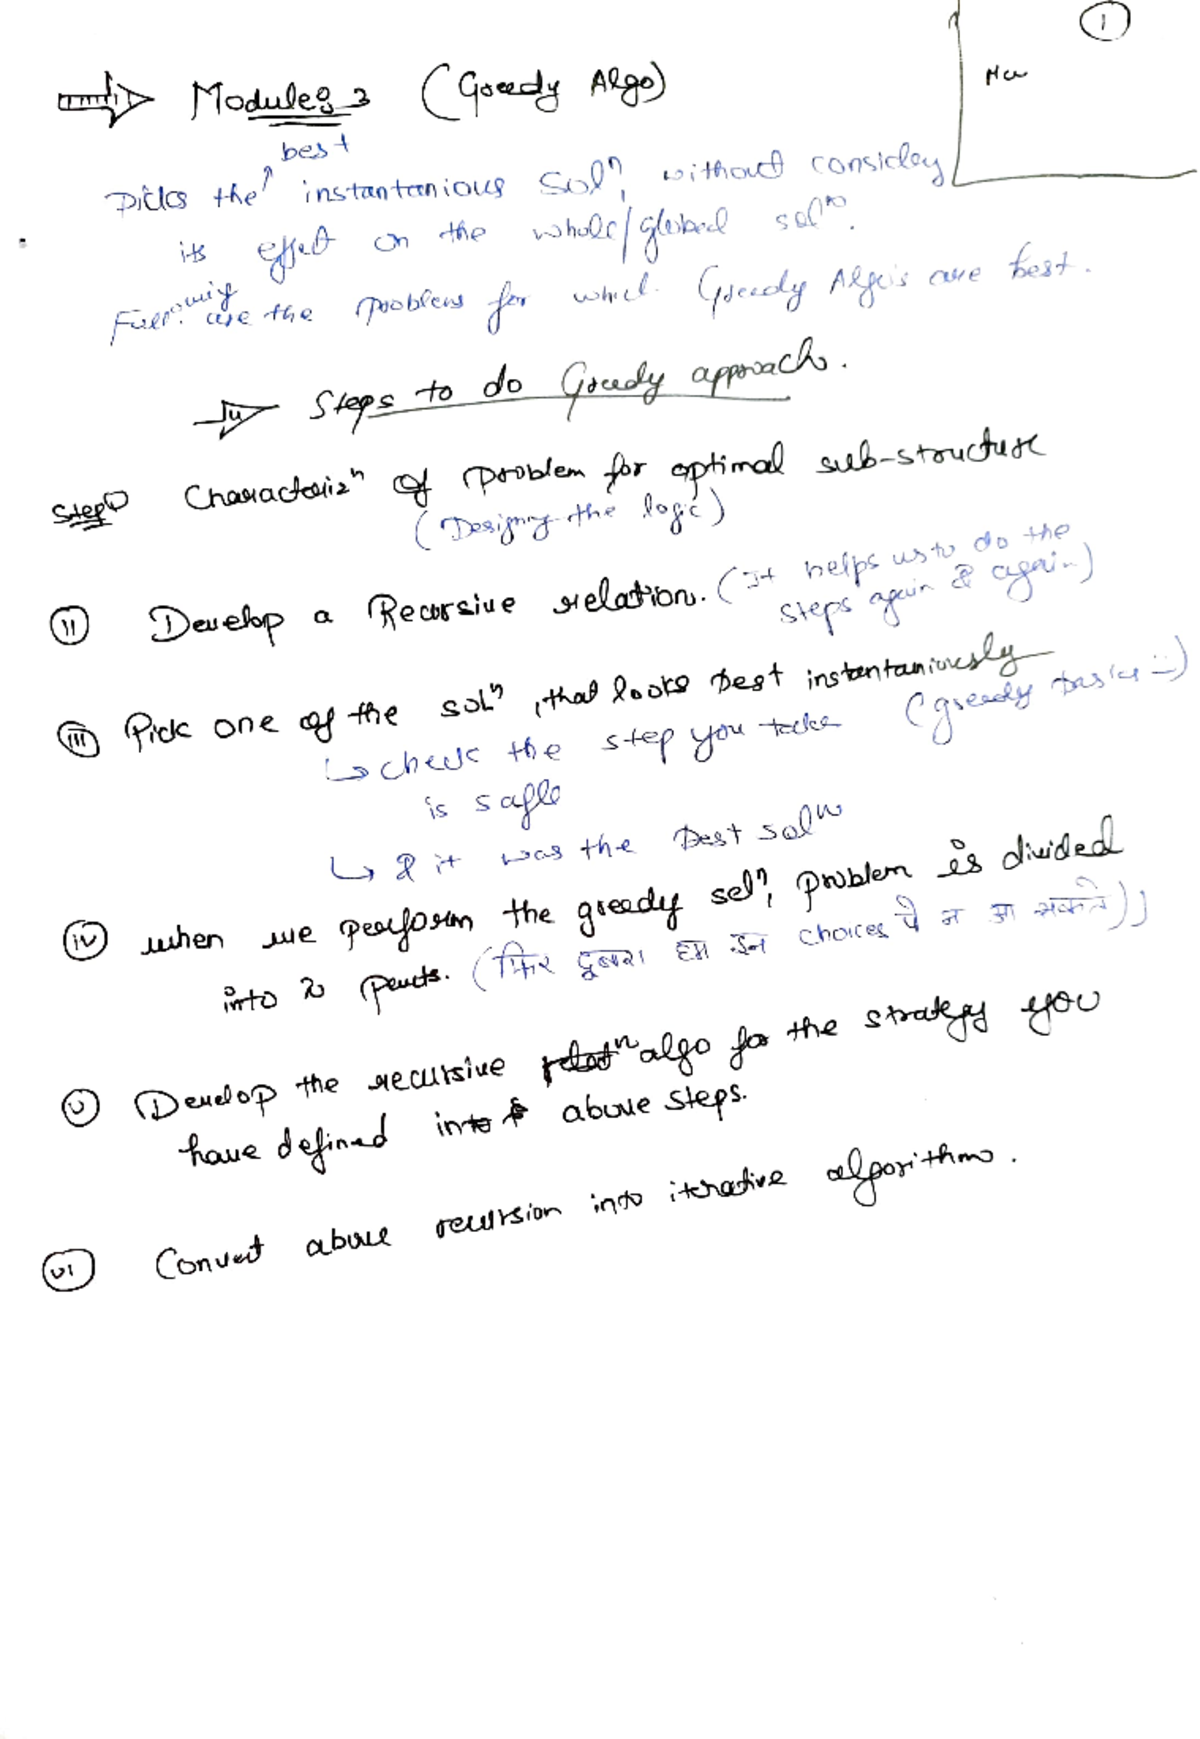 1
Modules 3 (Greedy Algo)
best
Picks the instantanious solⁿ, without considey
its effect on the whole/global solⁿ.
are the problems for which Greedy Algo's are best.
Steps to do Greedy approach.
Step ① Characterizⁿ of problem for optimal sub-structure
(Designing the logic)
ii Develop a Recursive relation. (It helps us to do the
steps again & again)
iii Pick one of the solⁿ, that looks best instantaniously
↳ check the step you take (greedy basics :-)
is safe
↳ & it was the best solⁿ
iv when we perform the greedy selⁿ, problem is divided
into 2 parts. (फिर दुबारा हम इन choices पे न आ सकते)
v Develop the recursive algo for the strategy you
have defined into above steps.
vi Convert above recursion into iterative algorithms.